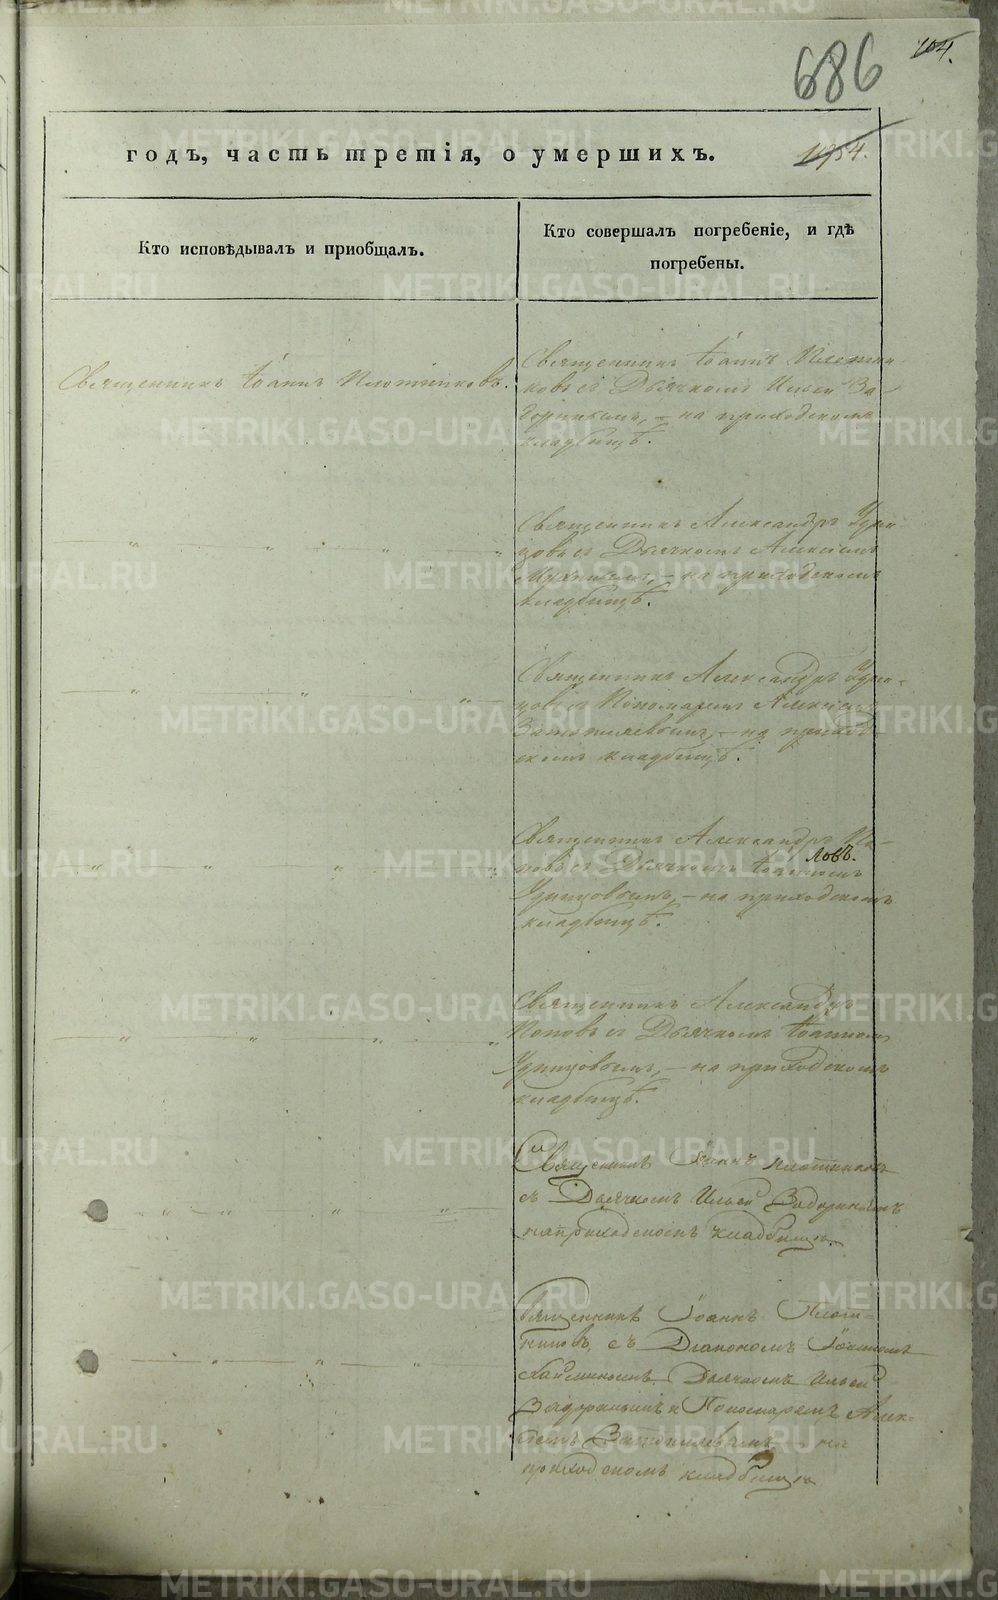 686
104.
годъ, часть третія, о умершихъ.
1754.
Кто исповѣдывалъ и приобщалъ.
Кто совершалъ погребеніе, и гдѣ
погребены.
Священникъ Іоаннъ Плотниковъ.
Священникъ Іоаннъ Плотни-
ковъ съ Дьячкомъ Ильей За-
на приходскомъ
кладбищѣ.
Священникъ Александръ Удин-
цовъ съ Дьячкомъ Алексіемъ
на приходскомъ
кладбищѣ.
Священникъ Александръ Удин-
цовъ съ Пономаремъ Алексіемъ
на приход-
скомъ кладбищѣ.
Священникъ Александръ По-
повъ съ Дьячкомъ Іоанномъ
ловъ.
Удинцовымъ, – на приходскомъ
кладбищѣ.
Священникъ Александръ
Поповъ съ Дьячкомъ Іоанномъ
Удинцовымъ, – на приходскомъ
кладбищѣ.
Священникъ Іоаннъ Плотниковъ
съ Дьячкомъ Ильей
на приходскомъ кладбищѣ
Священникъ Іоаннъ Плот-
никовъ, съ Діакономъ Іоанномъ
Дьячкомъ Ильей
и Пономаремъ Алек-
на
приходскомъ кладбищѣ
METRIKI.GASO-URAL.RU